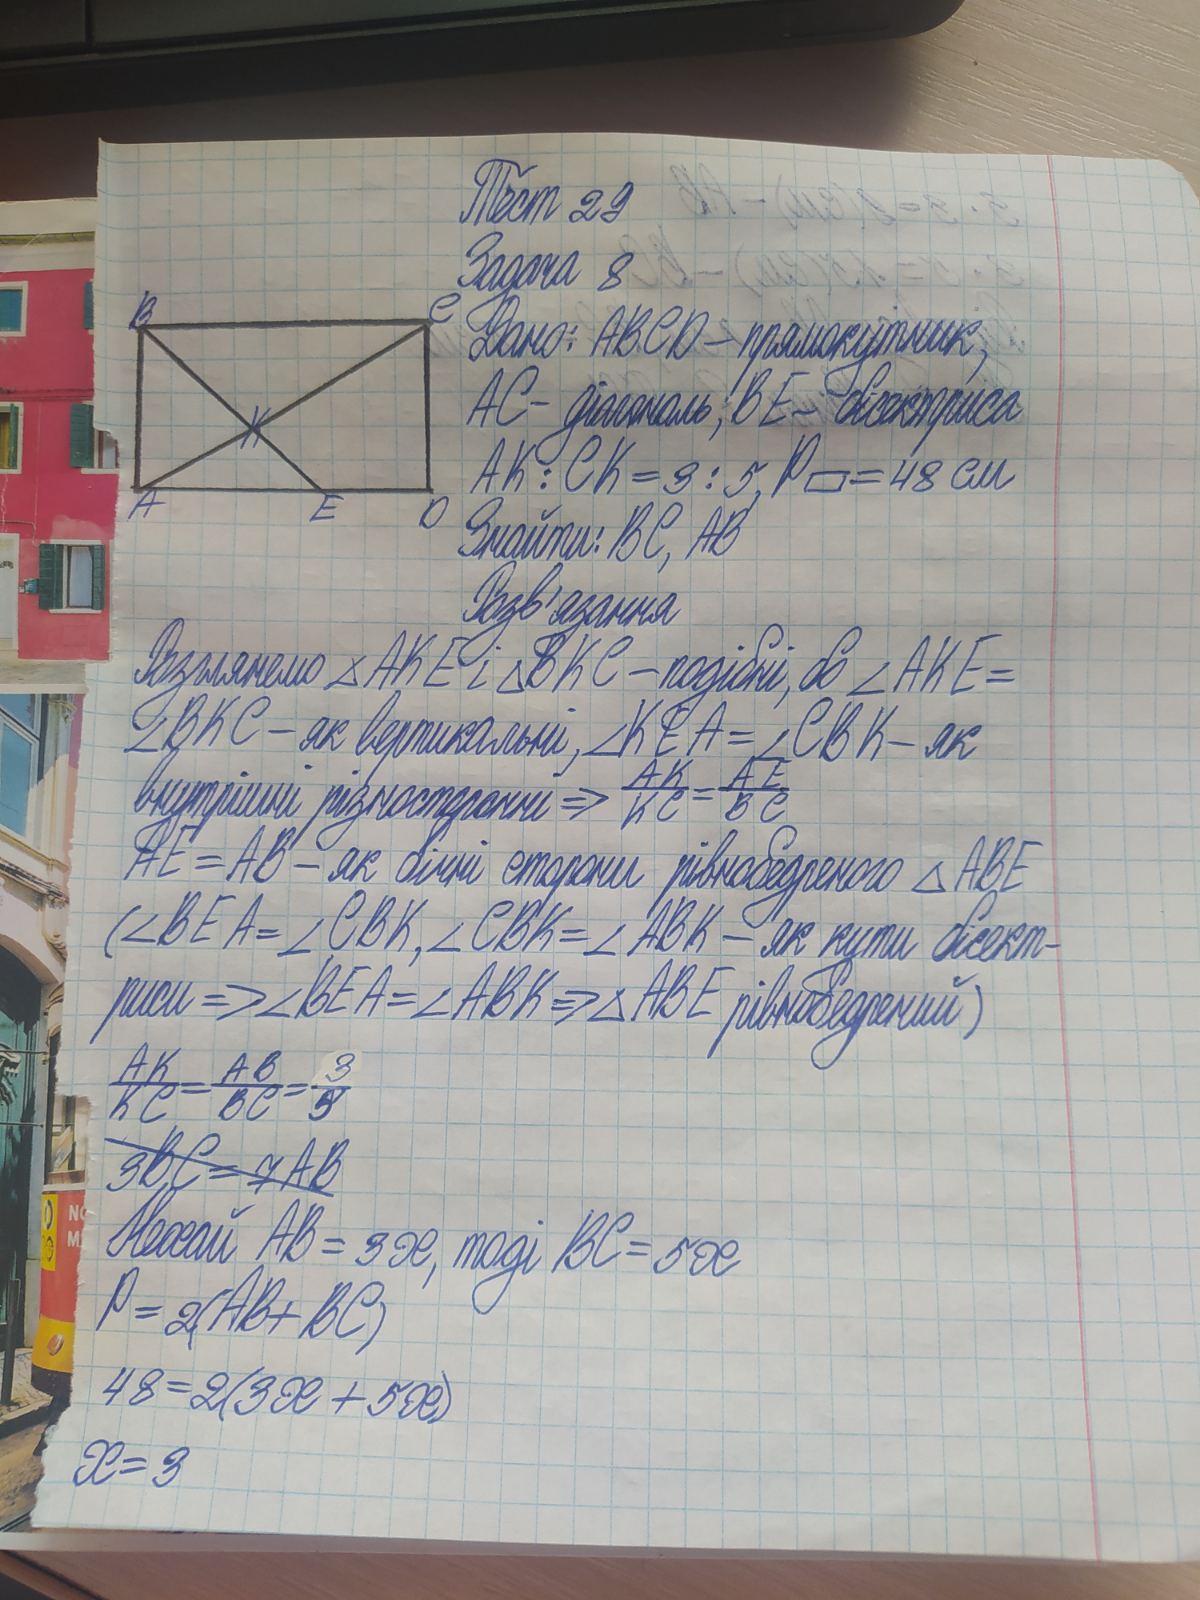 Тест 29
Задача 8
B
C
K
A
E
D
Дано: ABCD – прямокутник,
AC – діагональ, BE – бісектриса
AK : CK = 3 : 5, P▭ = 48 см
Знайти: BC, AB
Розв'язання
Розглянемо △AKE і △BKC – подібні, бо ∠AKE =
∠BKC – як вертикальні, ∠KEA = ∠CBK – як
внутрішні різносторонні => AK/KC = AE/BC
AE = AB – як бічні сторони рівнобедреного △ABE
(∠BEA = ∠CBK, ∠CBK = ∠ABK – як кути бісект-
риси => ∠BEA = ∠ABK => △ABE рівнобедрений)
AK/KC = AB/BC = 3/5
3BC = 7AB
Нехай AB = 3x, тоді BC = 5x
P = 2(AB + BC)
48 = 2(3x + 5x)
x = 3